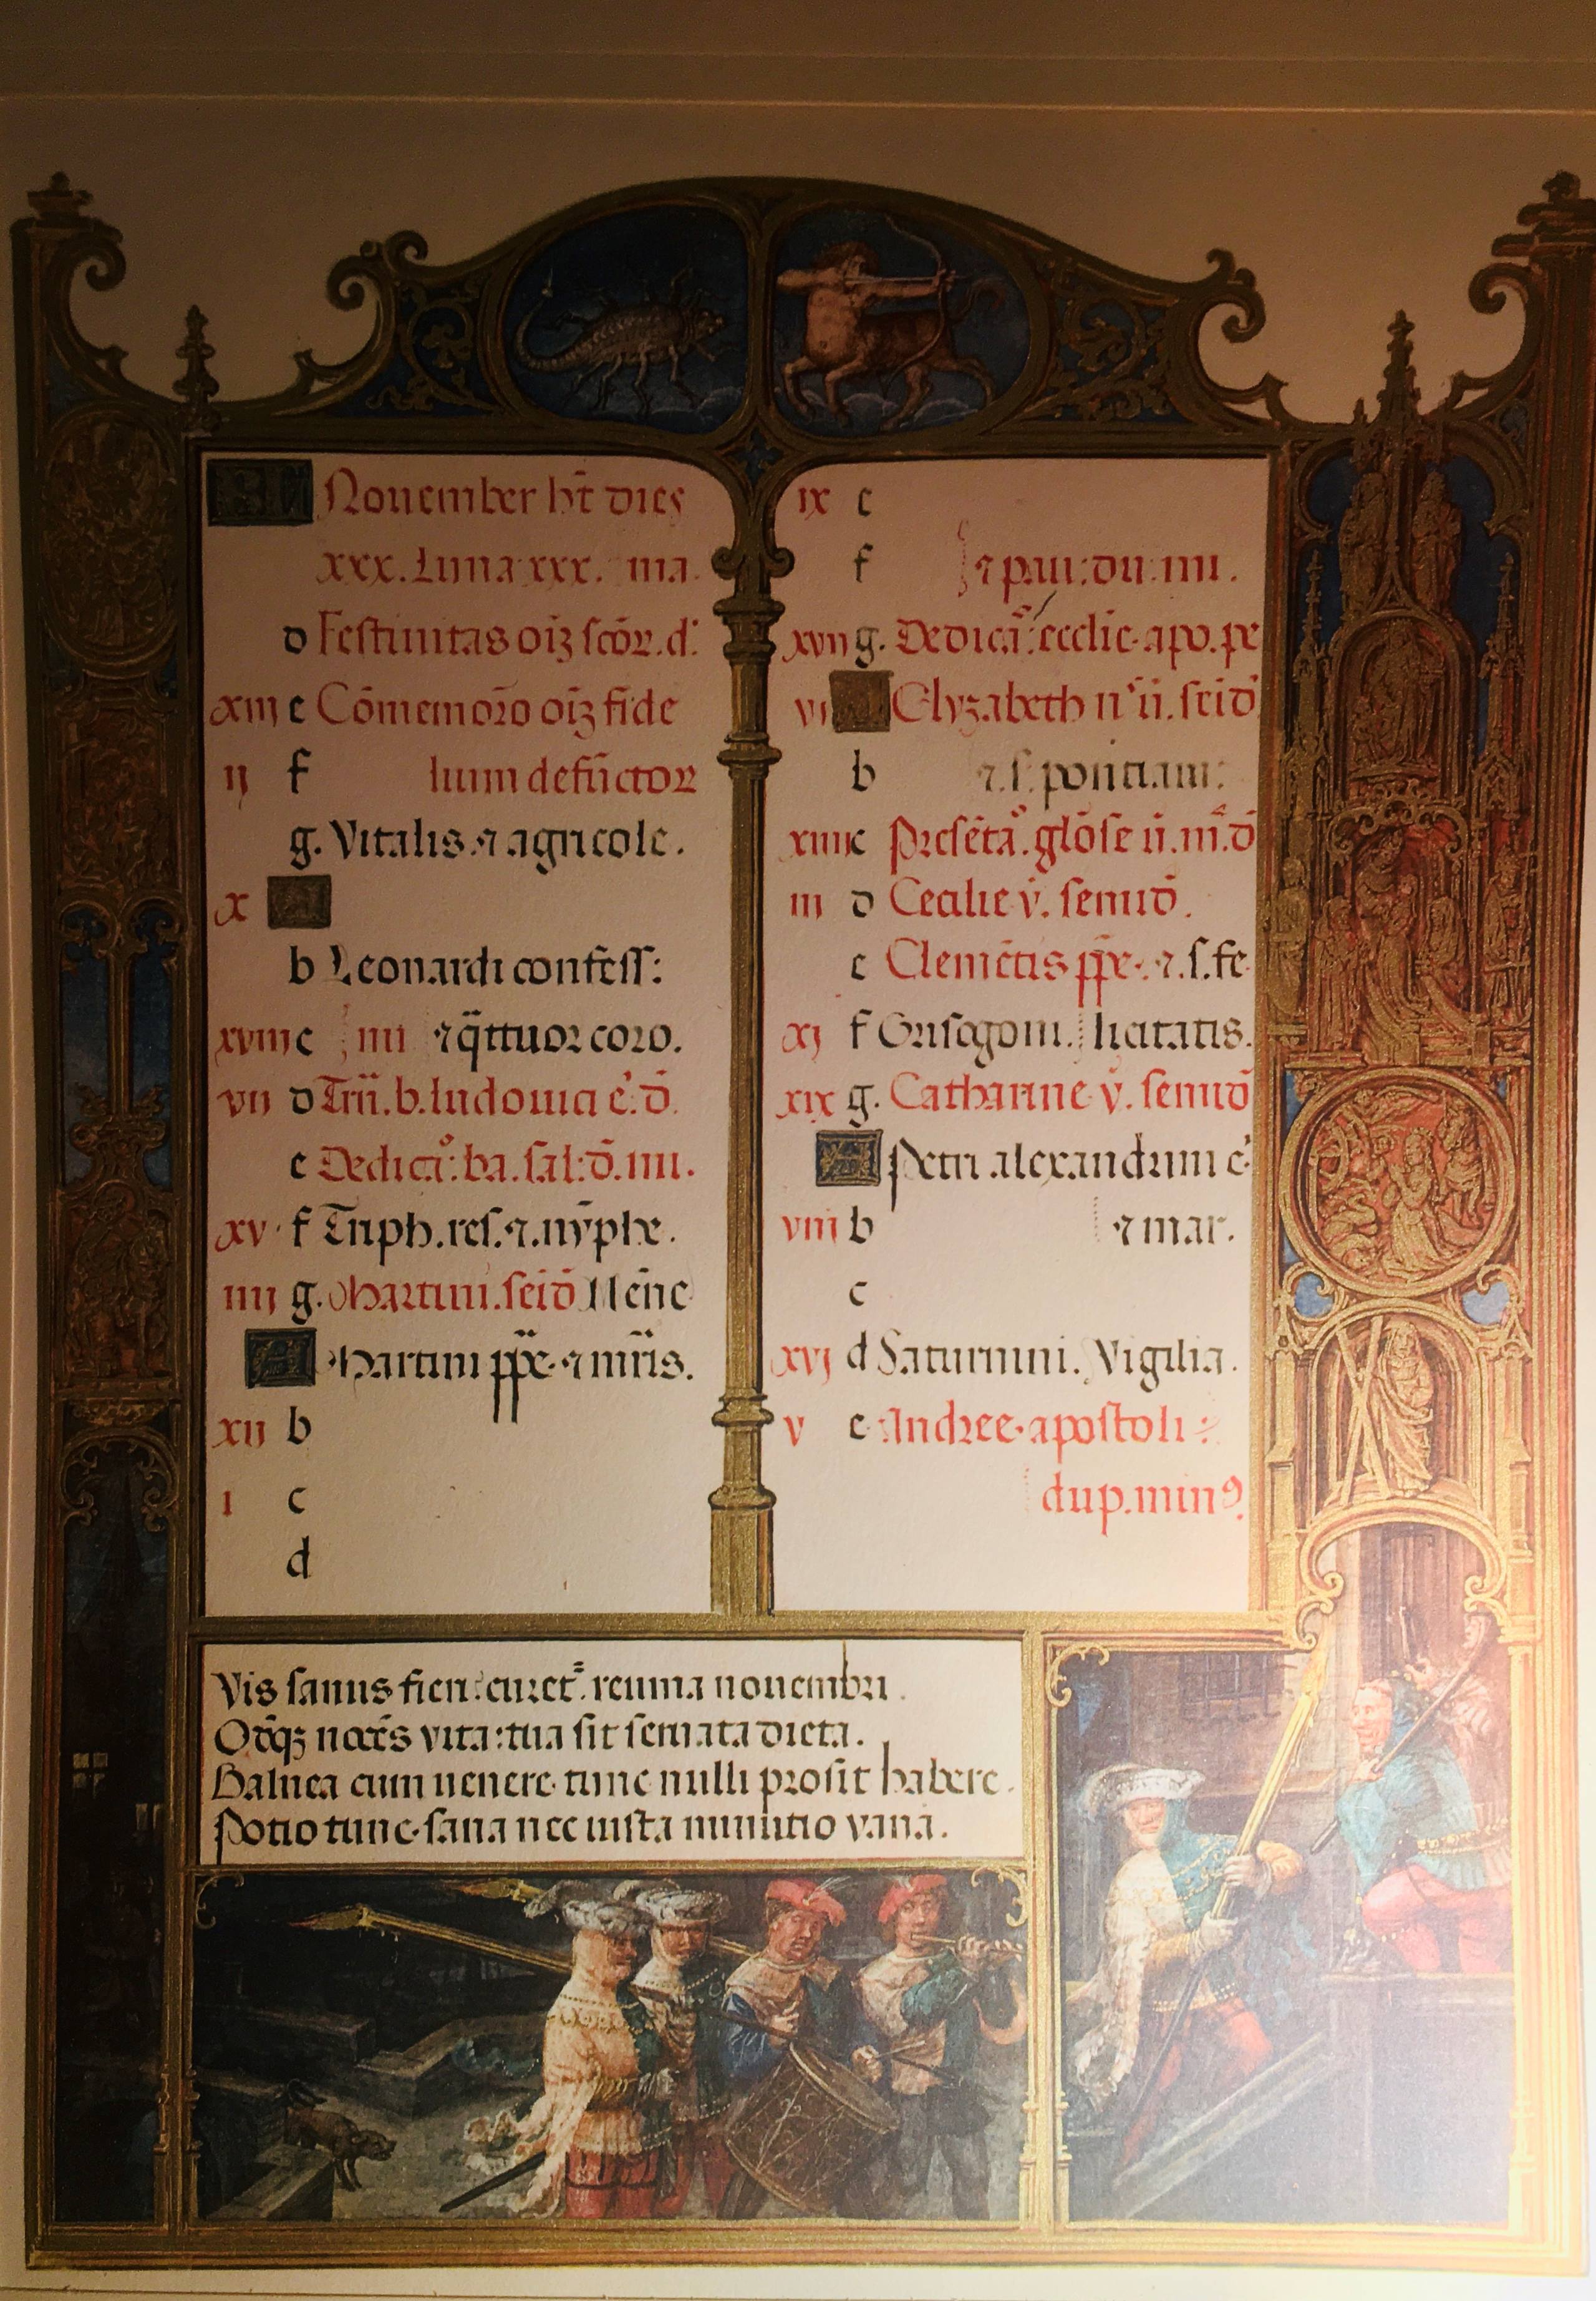 KL Nouember ħt dies
xxx. Luna xxx.
d Festiuitas oīʒ scōꝝ. d.
xiij e Cōmemorō oīʒ fide
ij f lium defūctoꝝ
g. Vitalis. ⁊ agricole.
x A
b Leonardi confess:
xviij c iiii ⁊ q̄ttuor coro.
vij d b. ludouici c. d.
e Dedicā: ba. sal: d. iiii.
xv f Triph. res. ⁊. nȳphe.
iiij g. Martini. seīd Menē
A Martini pp̄e. ⁊ mr̄is.
xij b
i c
d
ix e
f
xvij g. Dedicā: ecclie. apo. pe
vi A Elyzabeth seīd
b ⁊. s. pontiani:
xiiij c Presētā. glōse ii. m. d
iij d Cecilie v. semid.
e Clemētis pp̄e. ⁊. s. fe
xj f Grisogoni. licitatis.
xix g. Catharine v. semid
A Petri alexandrini e
viij b ⁊ mar.
c
xvj d Saturnini. Vigilia.
v e Andree. apostoli:
dup. minꝰ.
Vis sanus fieri: curet̄. reuma nouembri.
Oīaqʒ nocēs vita: tua sit seruata dieta.
Balnea cum uenere. tunc nulli prosit habere.
Potio tunc. sana nec iusta minutio vana.